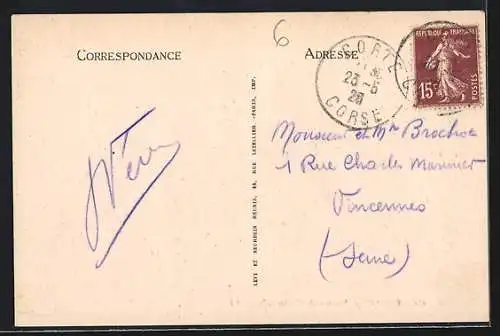 6
CORRESPONDANCE
ADRESSE
CORTE
23-5
CORSE
REPUBLIQUE FRANÇAISE
15c
POSTES
Monsieur et Mme Brochoc
1 Rue Charles Marinier
Vincennes
(Seine)
LEVY ET NEURDEIN REUNIS, 44, RUE LETELLIER-PARIS, IMP.